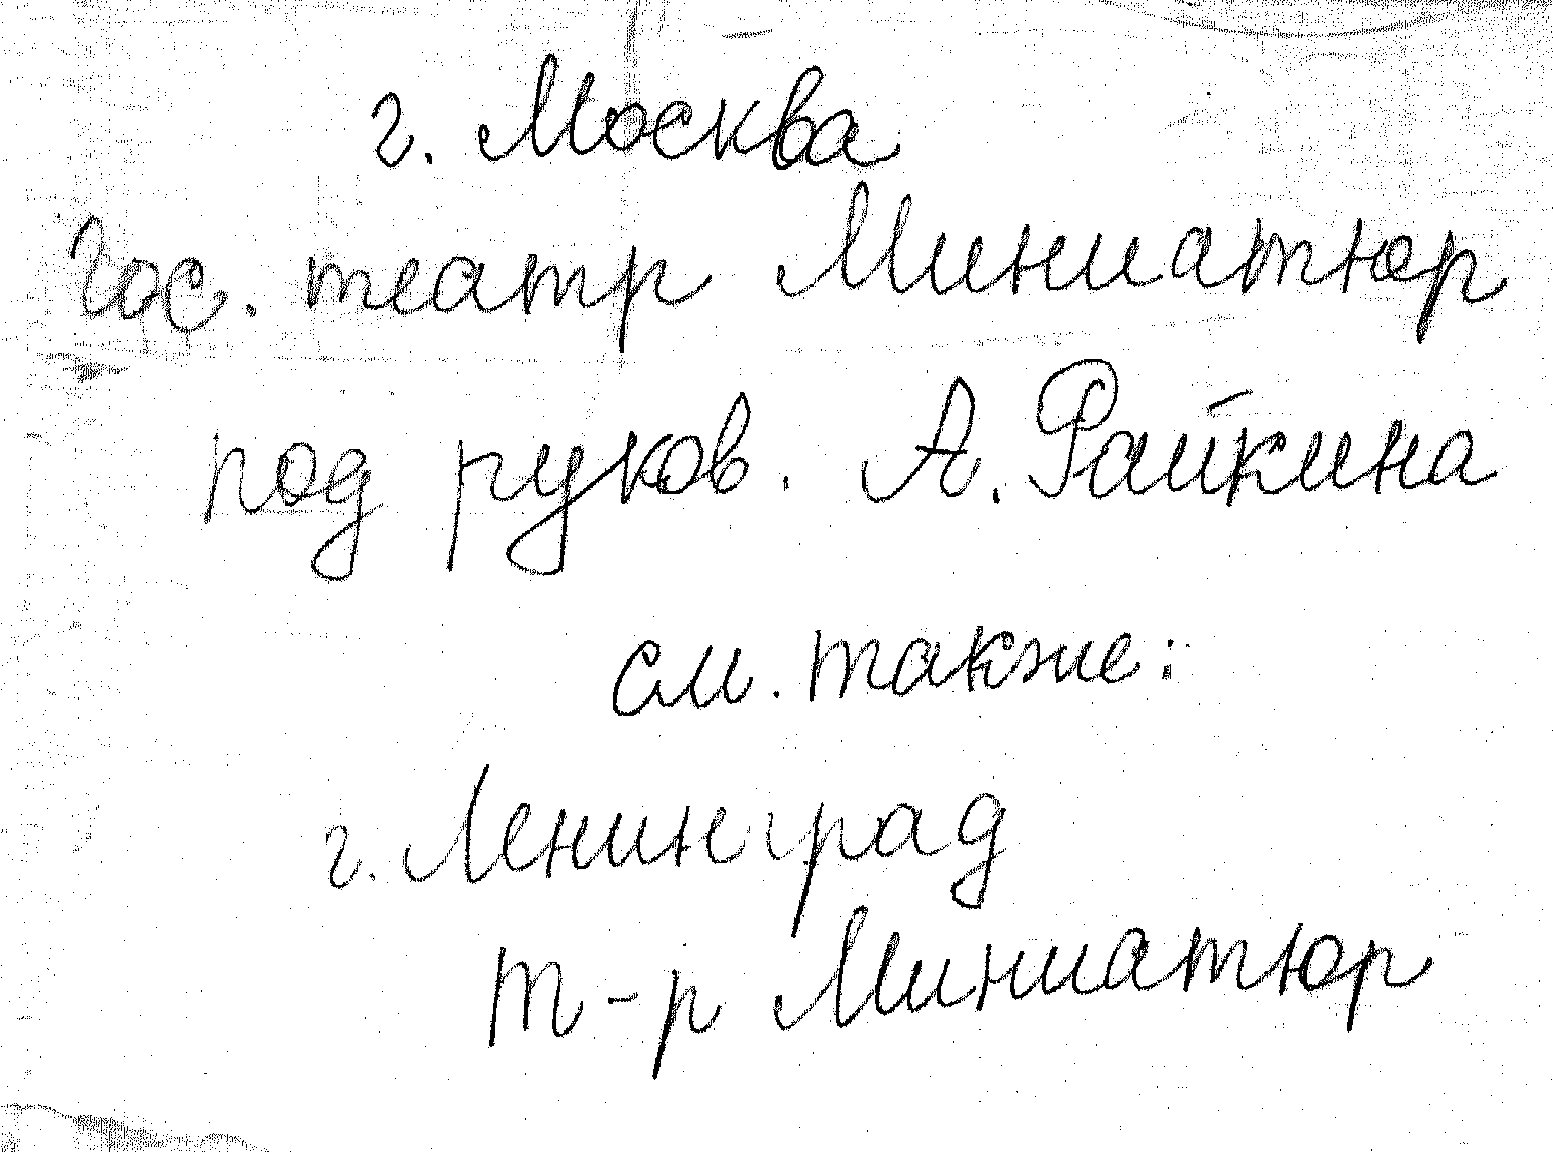 г. Москва
Гос. театр Миниатюр
под руков. А. Райкина
см. также:
г. Ленинград
т-р Миниатюр